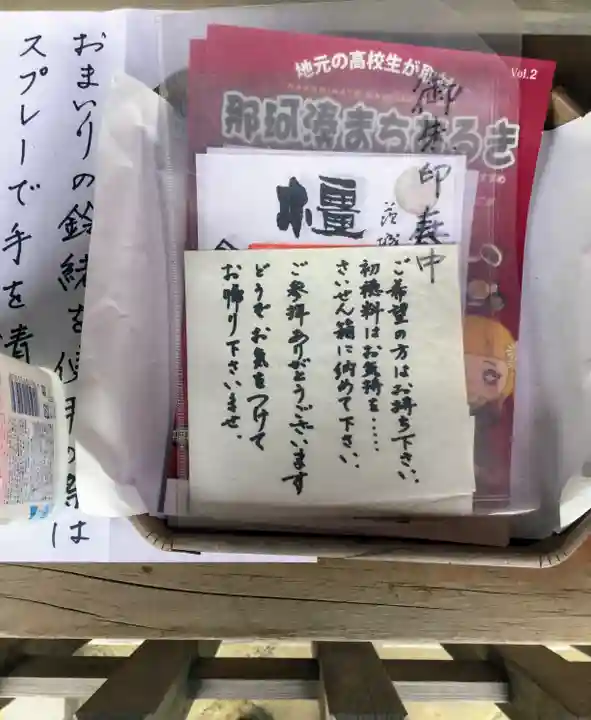 おまいりの鈴緒を使用の際は
スプレーで手を清
地元の高校生が
Vol.2
那珂湊まちあるき
御朱印
中
橿
茨城
ご希望の方はお持ち下さい。
初穂料はお気持を・・・・
さいせん箱に納めて下さい。
ご参拝ありがとうございます
どうぞお気をつけて
お帰り下さいませ。